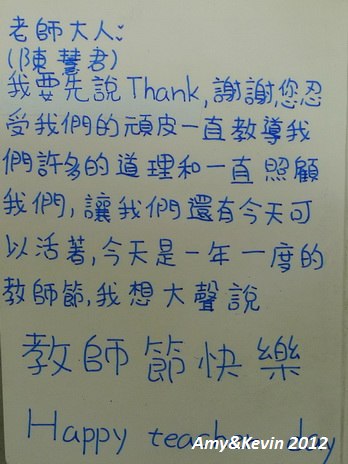 老師大人:
(陳慧君)
我要先說Thank,謝謝,您忍
受我們的頑皮一直教導我
們許多的道理和一直照顧
我們,讓我們還有今天可
以活著,今天是一年一度的
教師節,我想大聲說
教師節快樂
Happy teacher day
Amy&Kevin 2012